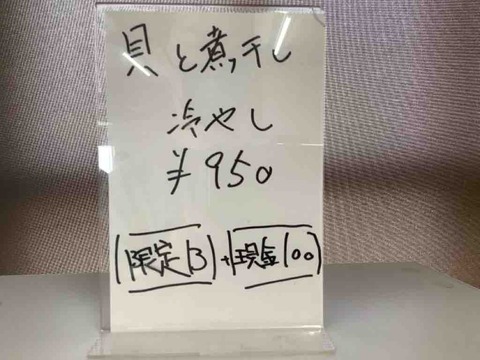 貝と煮干し
冷やし
¥950
限定B + 現金100